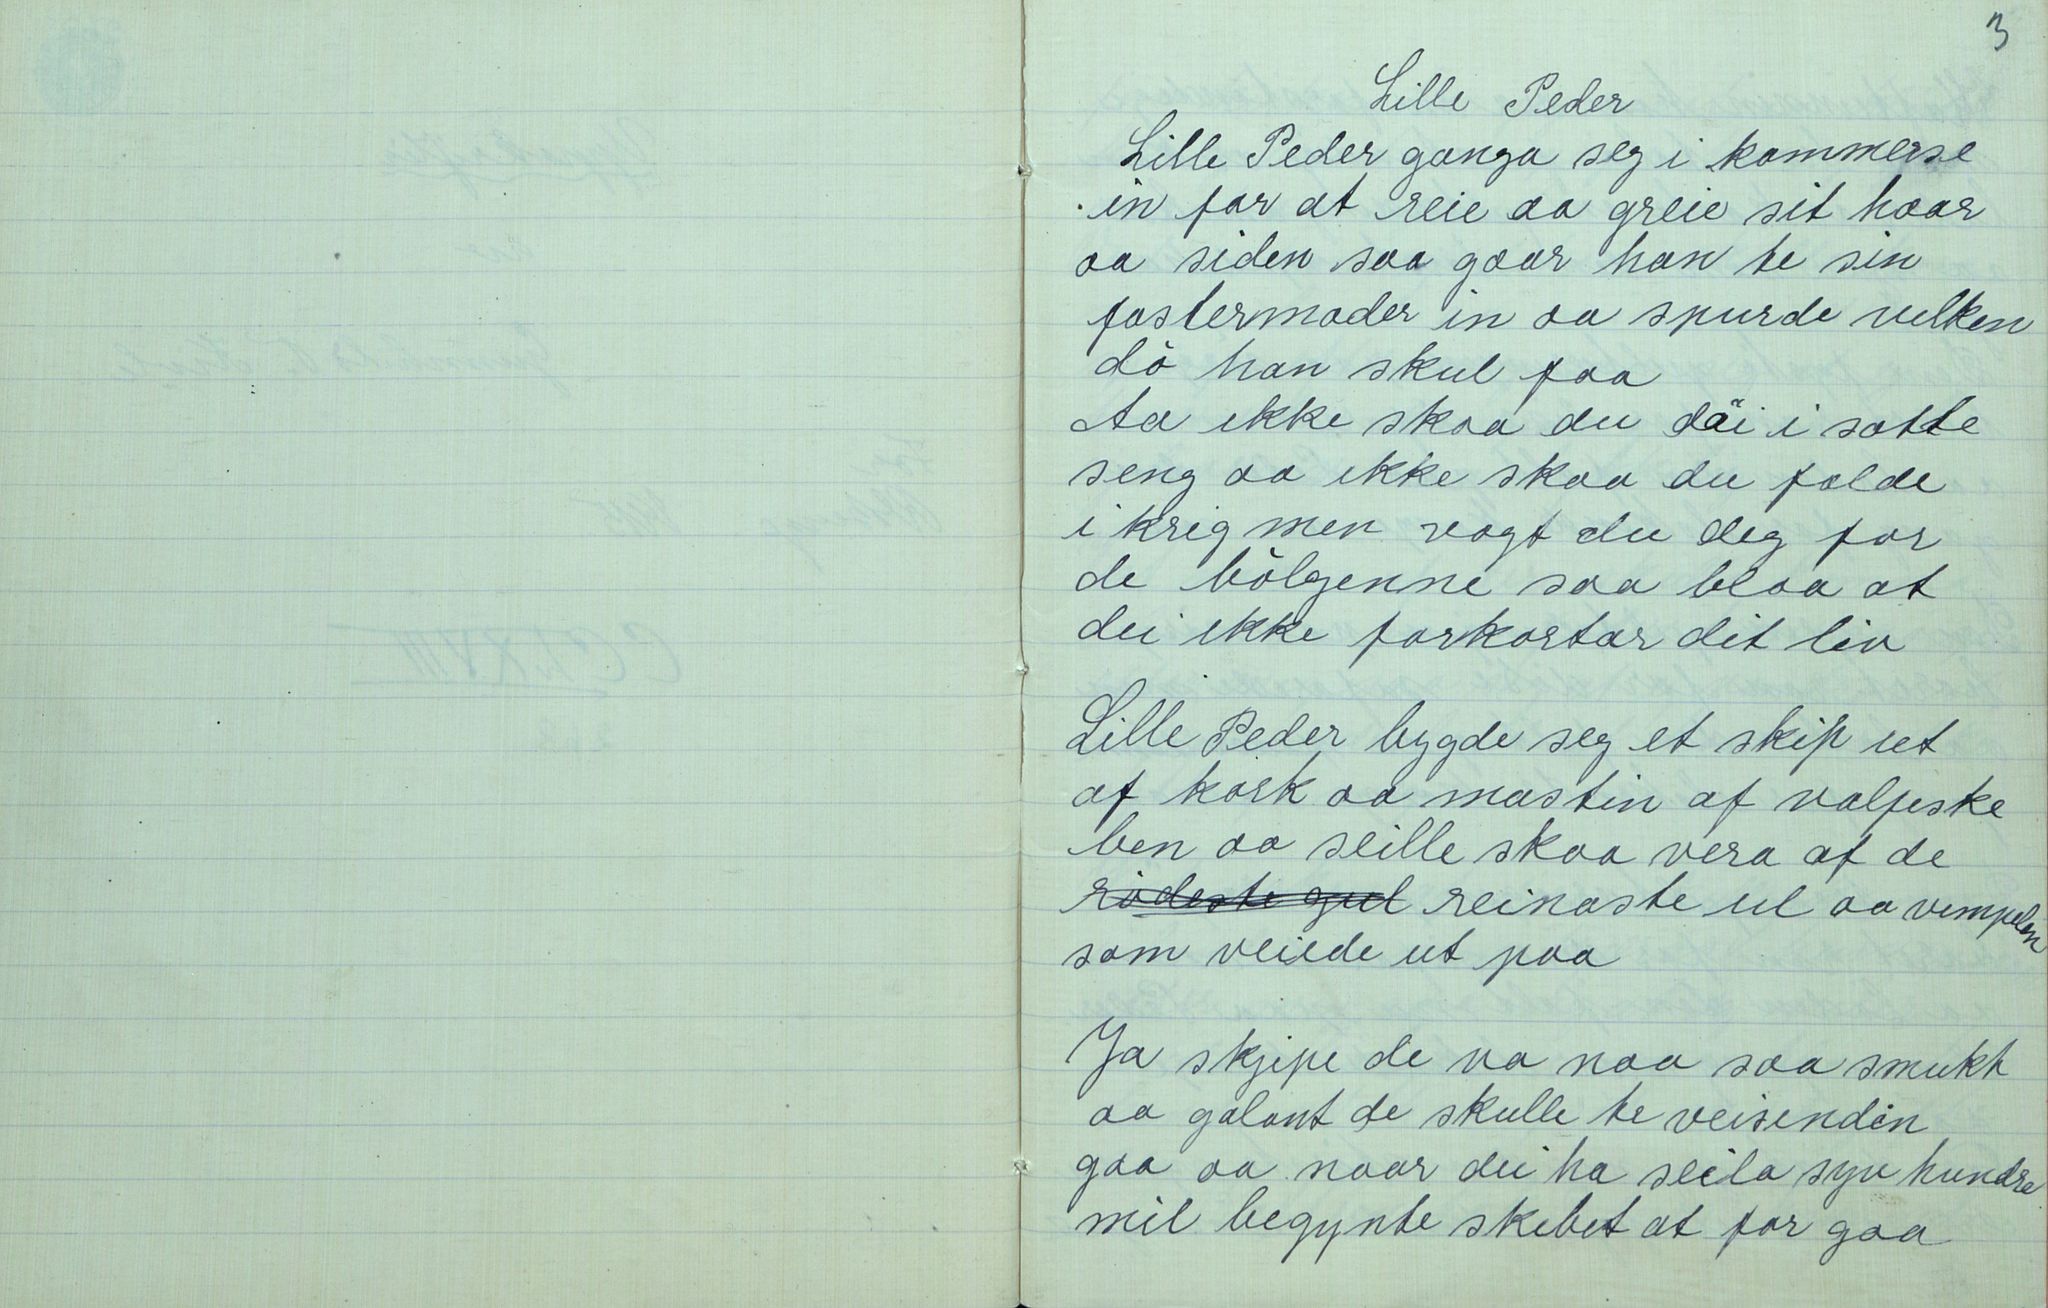 3
Lille Peder
Lille Peder ganga seg i kammerse
in for at reie aa greie sit haar
aa siden saa gaar han te sin
fostermoder in aa spurde vilken
dö han skul faa
Aa ikke skaa du däi i sotte
seng aa ikke skaa du falde
i krig men vogt du deg for
de bölgenne saa blaa at
dei ikke forkortar dit liv
Lille Peder bygde seg et skip ut
af kork aa mastin af valfiske
ben aa seille skaa vera af de
rödeste gul reinaste ul aa vimpelen
som veiede ut paa
Ja skjipe de va naa saa smukt
aa galant de skulle te veisendin
gaa aa naar dei ha seila syv hundre
mil begynte skebet at for gaa